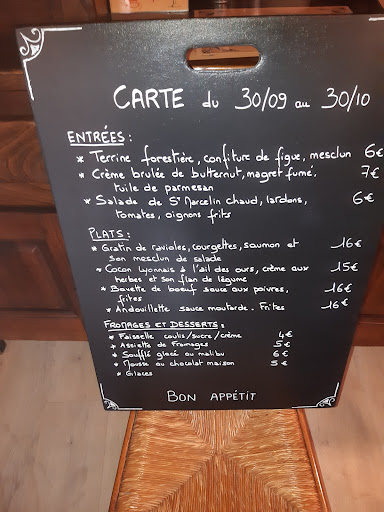 CARTE du 30/09 au 30/10
ENTRÉES :
* Terrine forestière, confiture de figue, mesclun 6€
* Crème brulée de butternut, magret fumé, 7€
tuile de parmesan
* Salade de St Marcelin chaud, lardons, 6€
tomates, oignons frits
PLATS :
* Gratin de ravioles, courgettes, saumon et 16€
son mesclun de salade
* Cocon Lyonnais à l'ail des ours, crème aux 15€
herbes et son flan de légume
* Bavette de boeuf sauce aux poivres, 16€
frites
* Andouillette sauce moutarde. Frites 16€
FROMAGES ET DESSERTS :
* Faisselle coulis/sucre/crème 4€
* Assiette de Fromages 5€
* Soufflé glacé au malibu 6€
* Mousse au chocolat maison 5€
* Glaces
BON APPÉTIT